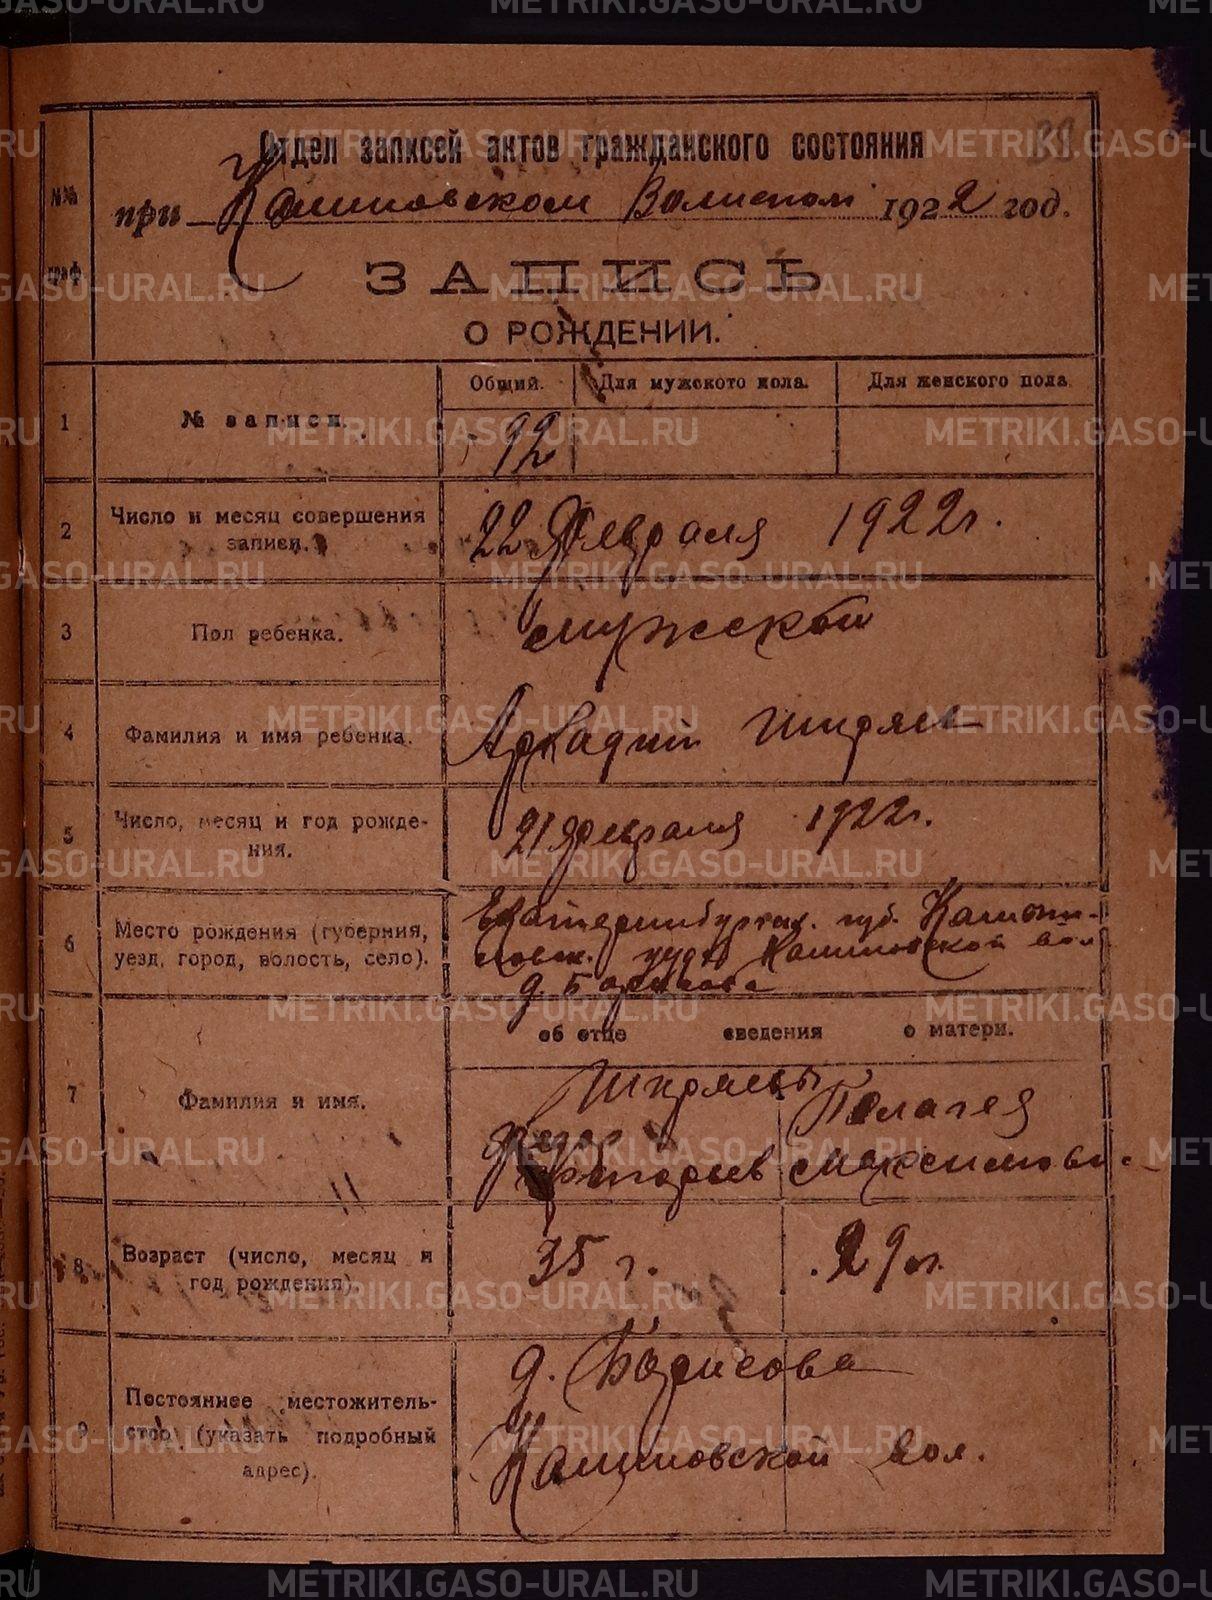 39
Отдел записей актов гражданского состояния
при Калиновском Волиспол 1922 год.
№№ граф
ЗАПИСЬ
О РОЖДЕНИИ.
Общий. Для мужского пола. Для женского пола
1 № записи. 92
2 Число и месяц совершения записи. 22 Февраля 1922 г.
3 Пол ребенка. мужской
4 Фамилия и имя ребенка. Аркадий
5 Число, месяц и год рождения. 21 февраля 1922 г.
6 Место рождения (губерния, уезд, город, волость, село). губ. Камыш-
ловск. уезд Калиновской вол
д. Борисова
об отце сведения о матери.
7 Фамилия и имя.
Федор Пелагея
Григорьев Максимова.
8 Возраст (число, месяц и год рождения). 35 г. 29 л.
9 Постоянное местожительство (указать подробный адрес). д. Борисова
Калиновской вол.
METRIKI.GASO-URAL.RU